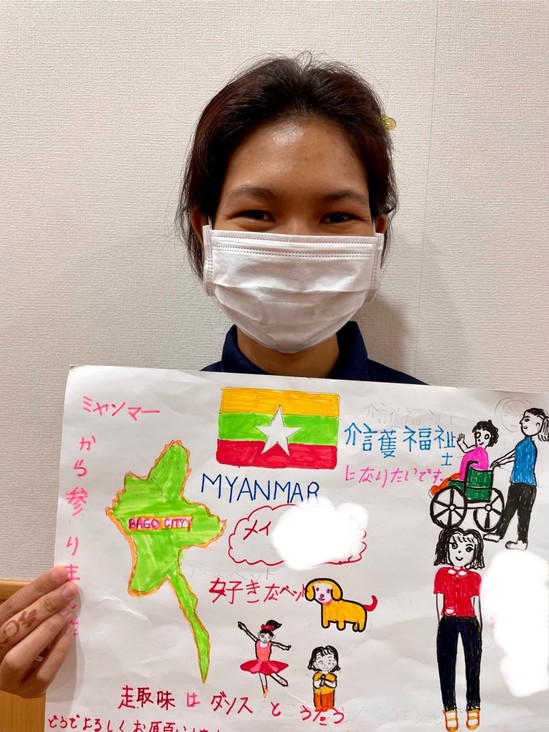 ミャンマーから参りました
MYANMAR
BAGO CITY
介護福祉士
になりたいです
メイ
好きなペット
走取味はダンスとうたう
どうぞよろしくお願いします